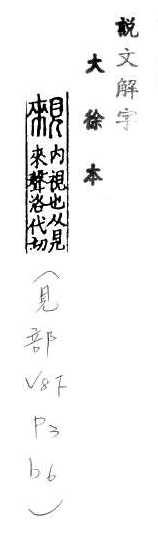 説文解字
大徐本
覝 內視也从見
來聲洛代切
(見部 V8下 P3 b6)